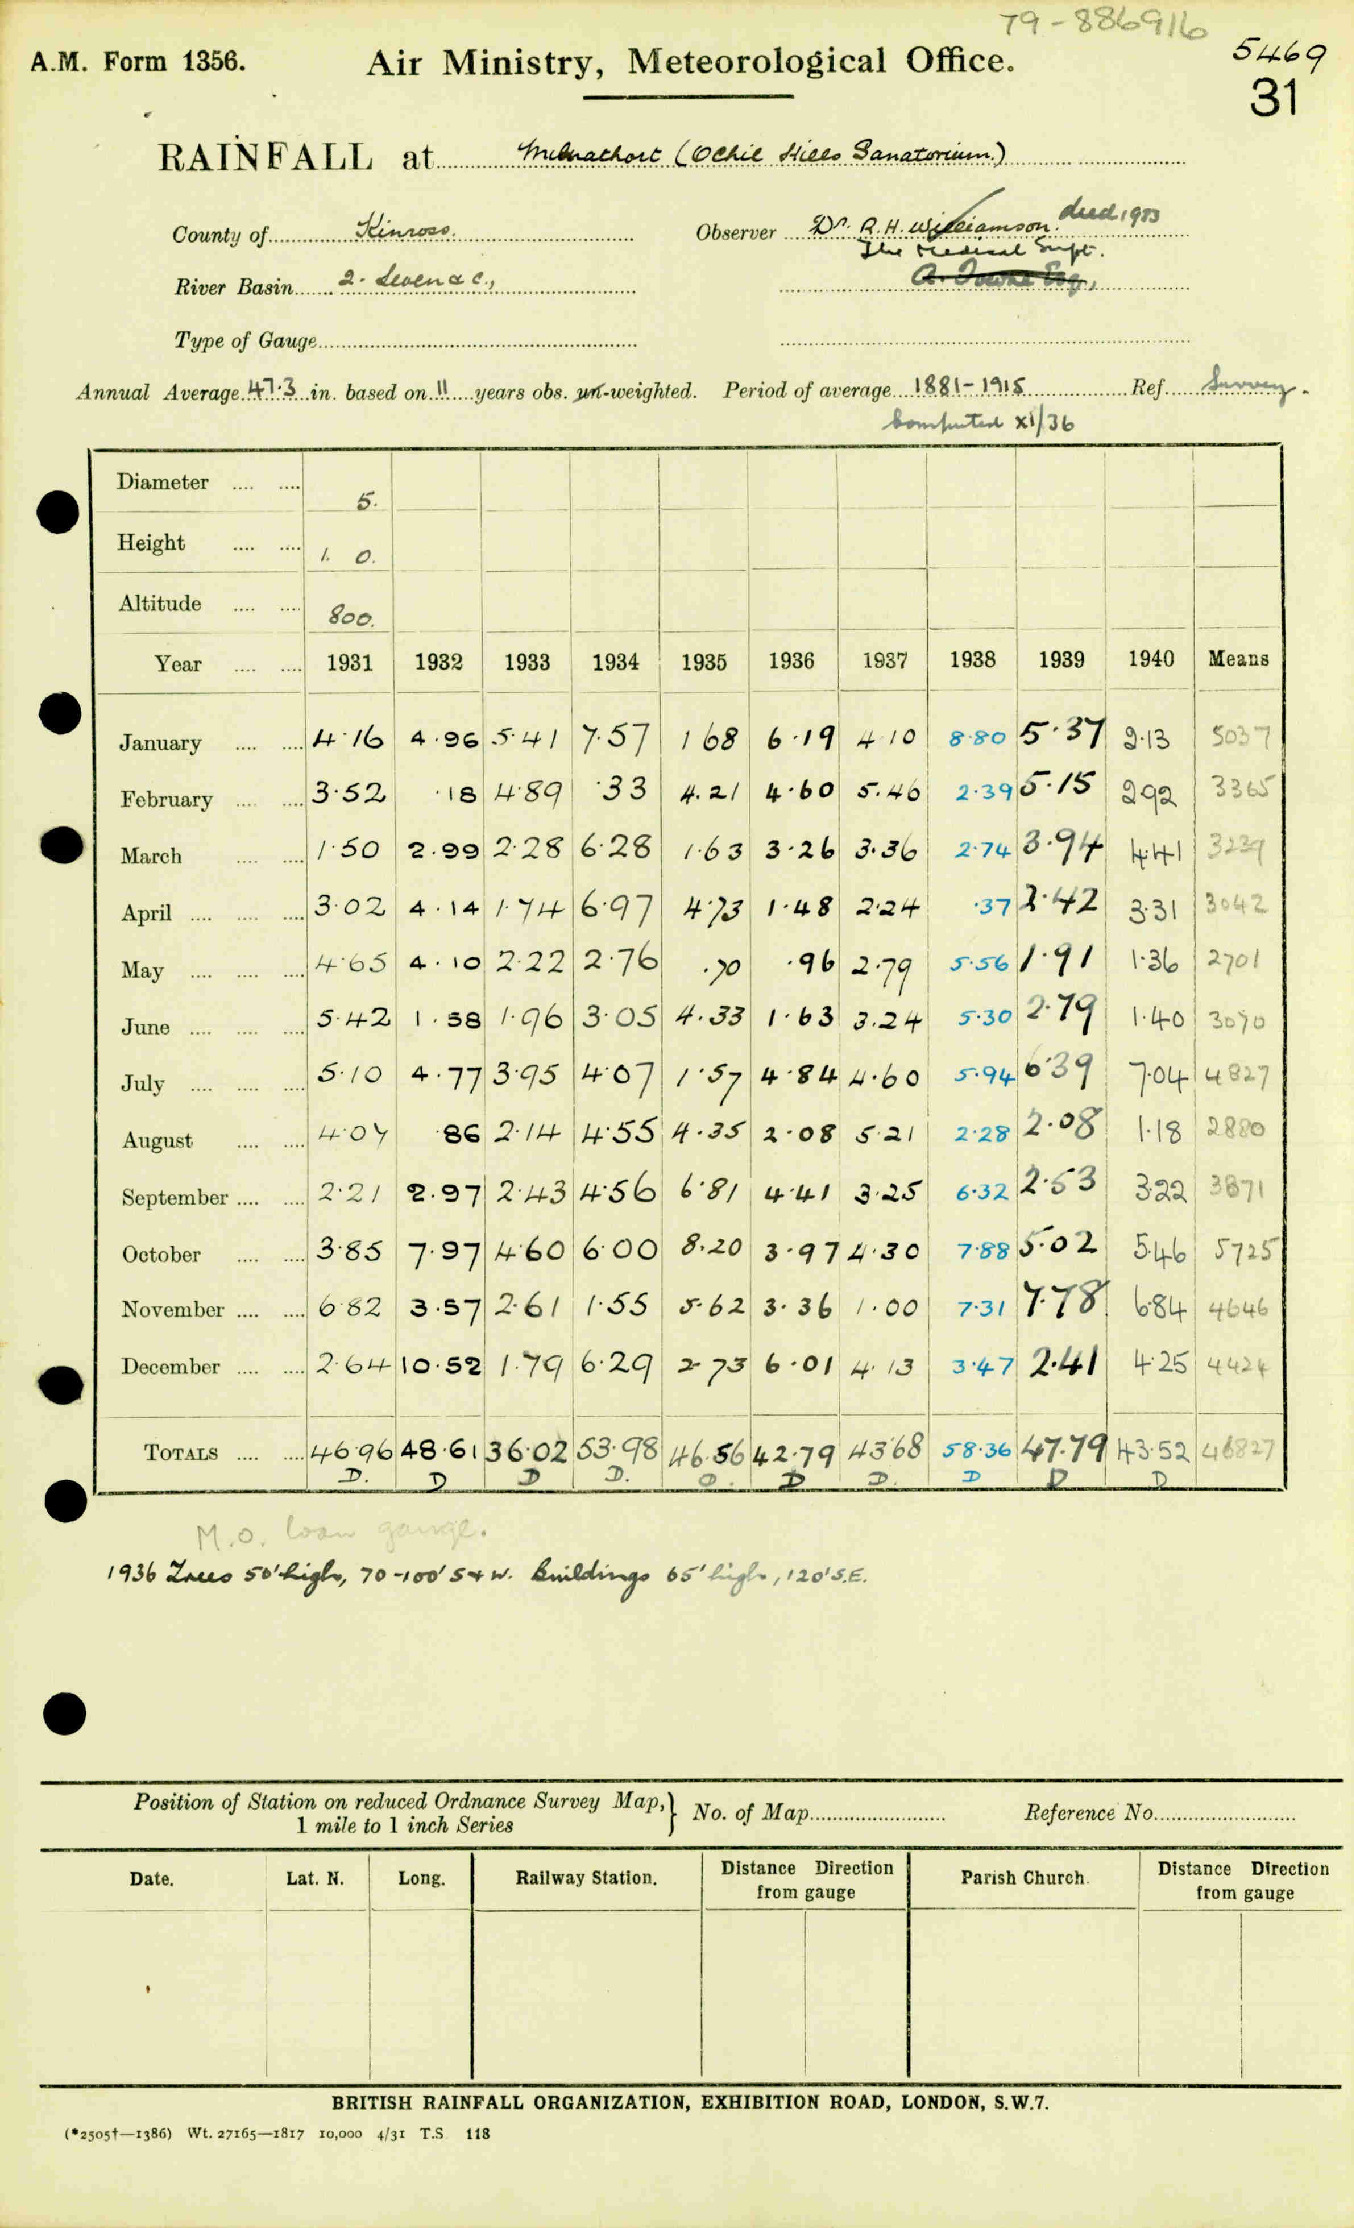 79-886916
A.M. Form 1356. Air Ministry, Meteorological Office. 5469
31
RAINFALL at Milnathort (Ochil Hills Sanatorium.)
County of Kinross. Observer Dr. R. H. Williamson. died 1933
The Medical Supt.
River Basin 2. Leven &c., Esq,
Type of Gauge
Annual Average 47.3 in. based on 11 years obs. un-weighted. Period of average 1881-1915 Ref. Survey.
Computed XI/36
Diameter 5.
Height 1. 0.
Altitude 800.
Year 1931 1932 1933 1934 1935 1936 1937 1938 1939 1940 Means
January 4.16 4.96 5.41 7.57 1 68 6.19 4.10 8.80 5.37 2.13 5037
February 3.52 .18 4.89 .33 4.21 4.60 5.46 2.39 5.15 2.92 3365
March 1.50 2.99 2.28 6.28 1.63 3.26 3.36 2.74 3.94 4.41 3239
April 3.02 4.14 1.74 6.97 4.73 1.48 2.24 .37 2.42 3.31 3042
May 4.65 4.10 2.22 2.76 .70 .96 2.79 5.56 1.91 1.36 2701
June 5.42 1.58 1.96 3.05 4.33 1.63 3.24 5.30 2.79 1.40 3070
July 5.10 4.77 3.95 4.07 1.57 4.84 4.60 5.94 6.39 7.04 4827
August 4.07 .86 2.14 4.55 4.35 2.08 5.21 2.28 2.08 1.18 2880
September 2.21 2.97 2.43 4.56 6.81 4.41 3.25 6.32 2.53 3.22 3871
October 3.85 7.97 4.60 6.00 8.20 3.97 4.30 7.88 5.02 5.46 5725
November 6.82 3.57 2.61 1.55 5.62 3.36 1.00 7.31 7.78 6.84 4646
December 2.64 10.52 1.79 6.29 2.73 6.01 4.13 3.47 2.41 4.25 4424
TOTALS 46.96 48.61 36.02 53.98 46.56 42.79 43.68 58.36 47.79 43.52 46827
D. D D D. D. D D. D D D
M.O. loan gauge.
1936 Trees 50' high, 70-100' S+W. Buildings 65' high, 120' S.E.
Position of Station on reduced Ordnance Survey Map, 1 mile to 1 inch Series } No. of Map Reference No.
Date. Lat. N. Long. Railway Station. Distance Direction from gauge Parish Church. Distance Direction from gauge
BRITISH RAINFALL ORGANIZATION, EXHIBITION ROAD, LONDON, S.W.7.
(*2505†—1386) Wt. 27165—1817 10,000 4/31 T.S. 118